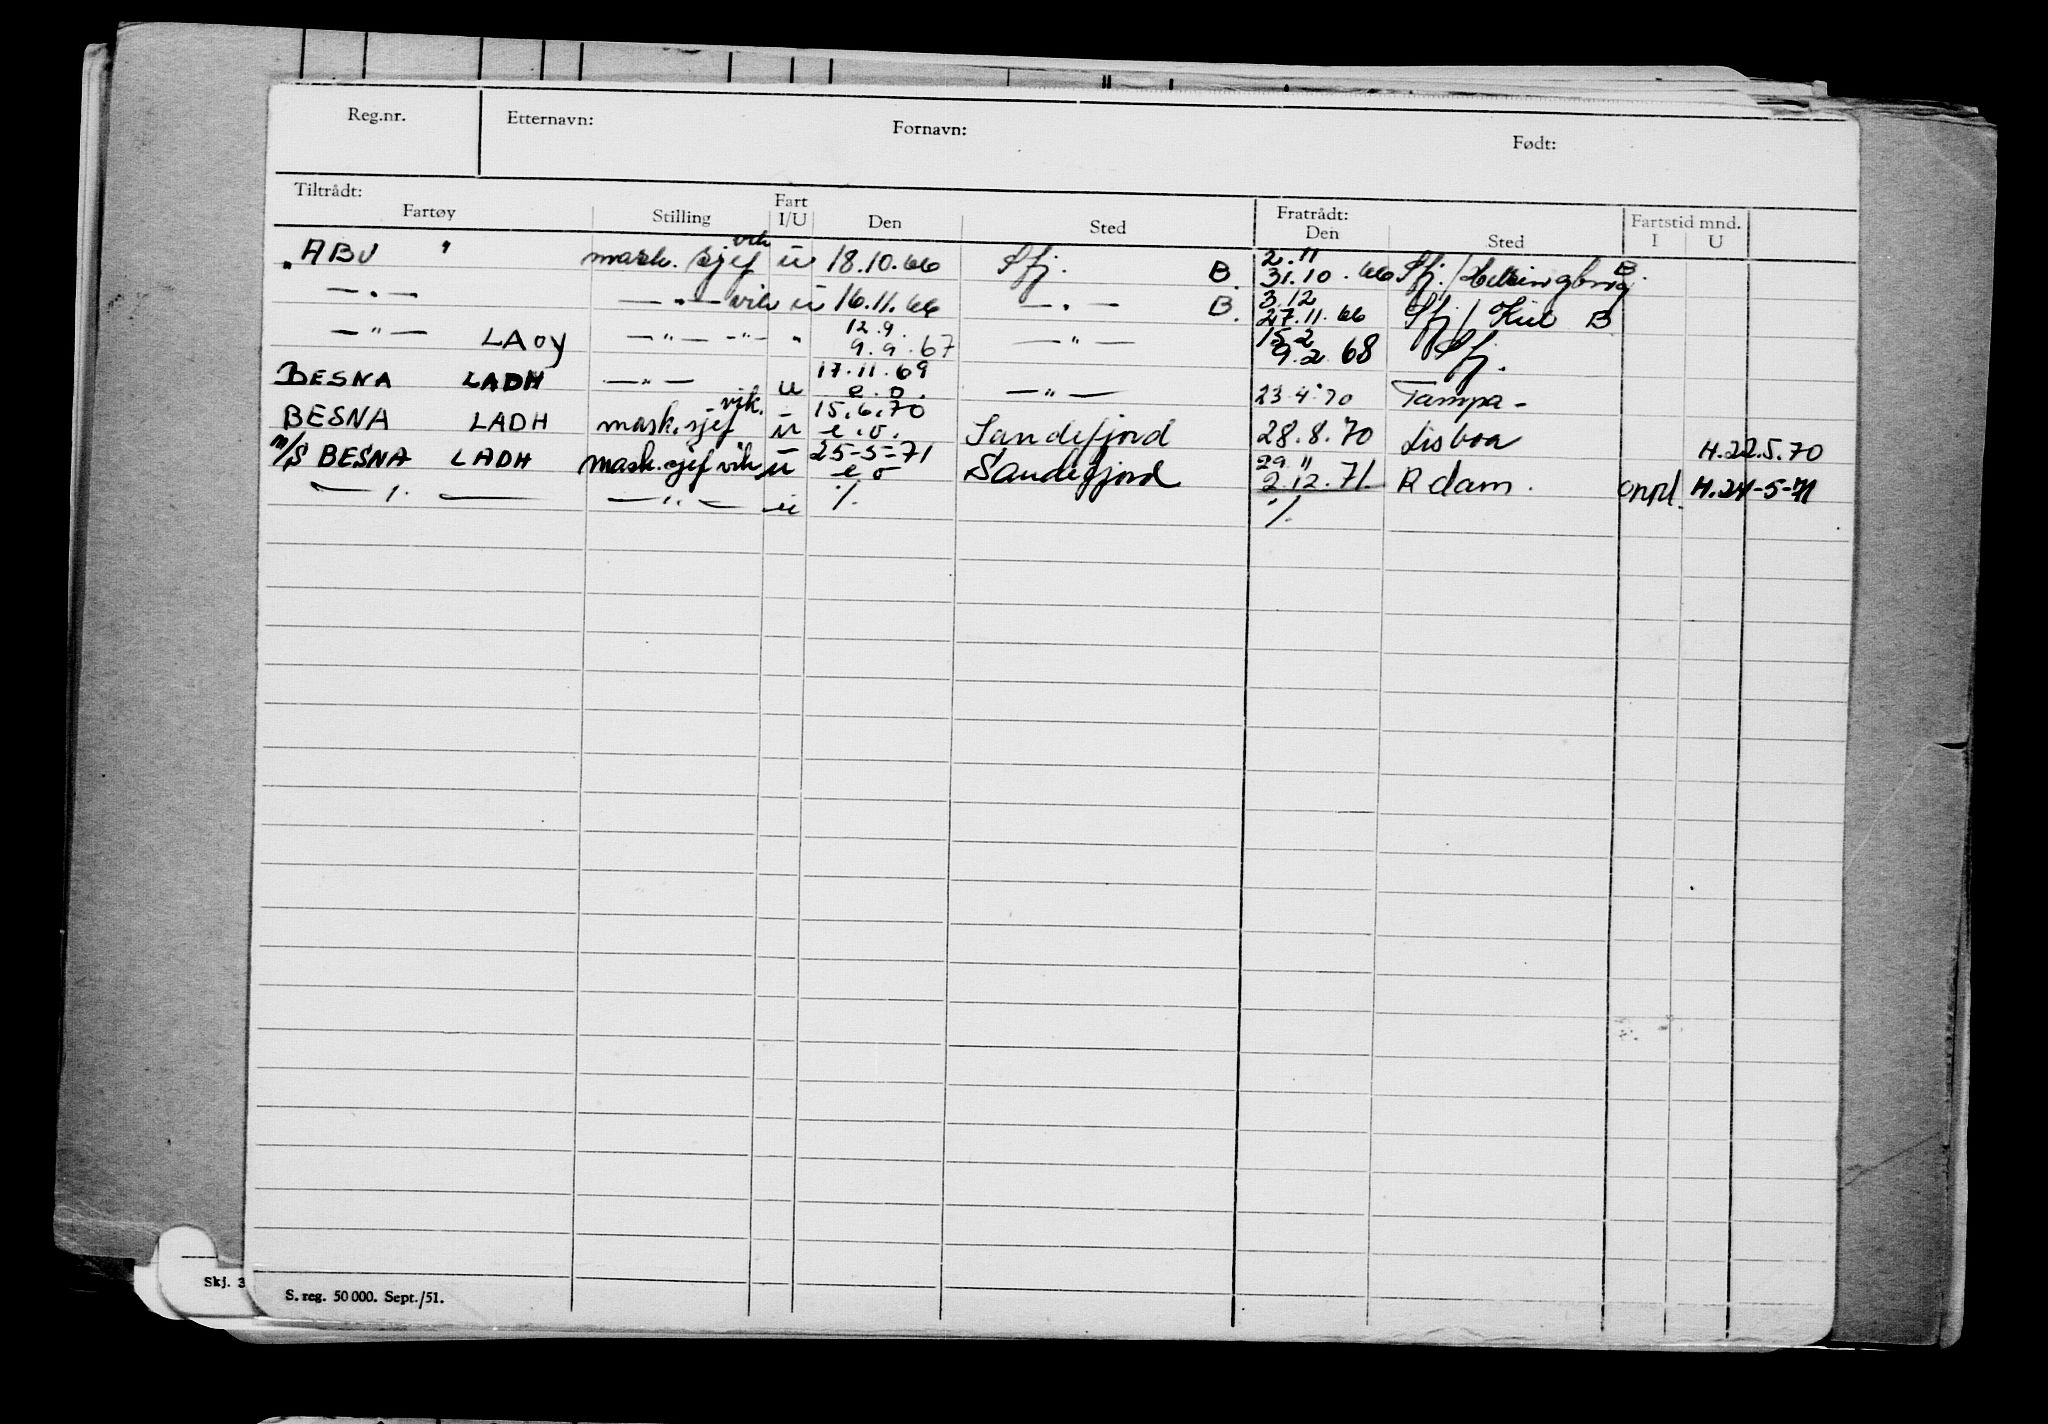 Reg.nr. Etternavn: Fornavn: Født:
Tiltrådt: Fratrådt:
Fartøy Stilling Fart I/U Den Sted Den Sted Fartstid mnd. I U
" ABU " mask. sjef vik u 18.10.66 Sfj. B. 2.11 31.10.66 Sfj./Helsingborg B.
— " — — " — vik u 16.11.66 — " — B. 3.12 27.11.66 Sfj/Kiel B
— " — LAOY — " — - " - " 12.9 9.9.67 — " — 15.2 9.2.68 Sfj.
BESNA LADH — " — u 17.11.69 e.o. — " — 23.4.70 Tampa -
BESNA LADH mask.sjef vik. u 15.6.70 e.o. Sandefjord 28.8.70 Lisboa H.22.5.70
M/S BESNA LADH mask.sjef vik u 25-5-71 e o Sandefjord 29. 11 2.12.71 Rdam. oppl. H.24-5-71
— /. — — " — u /. /.
Skj. 3
S. reg. 50 000. Sept./51.